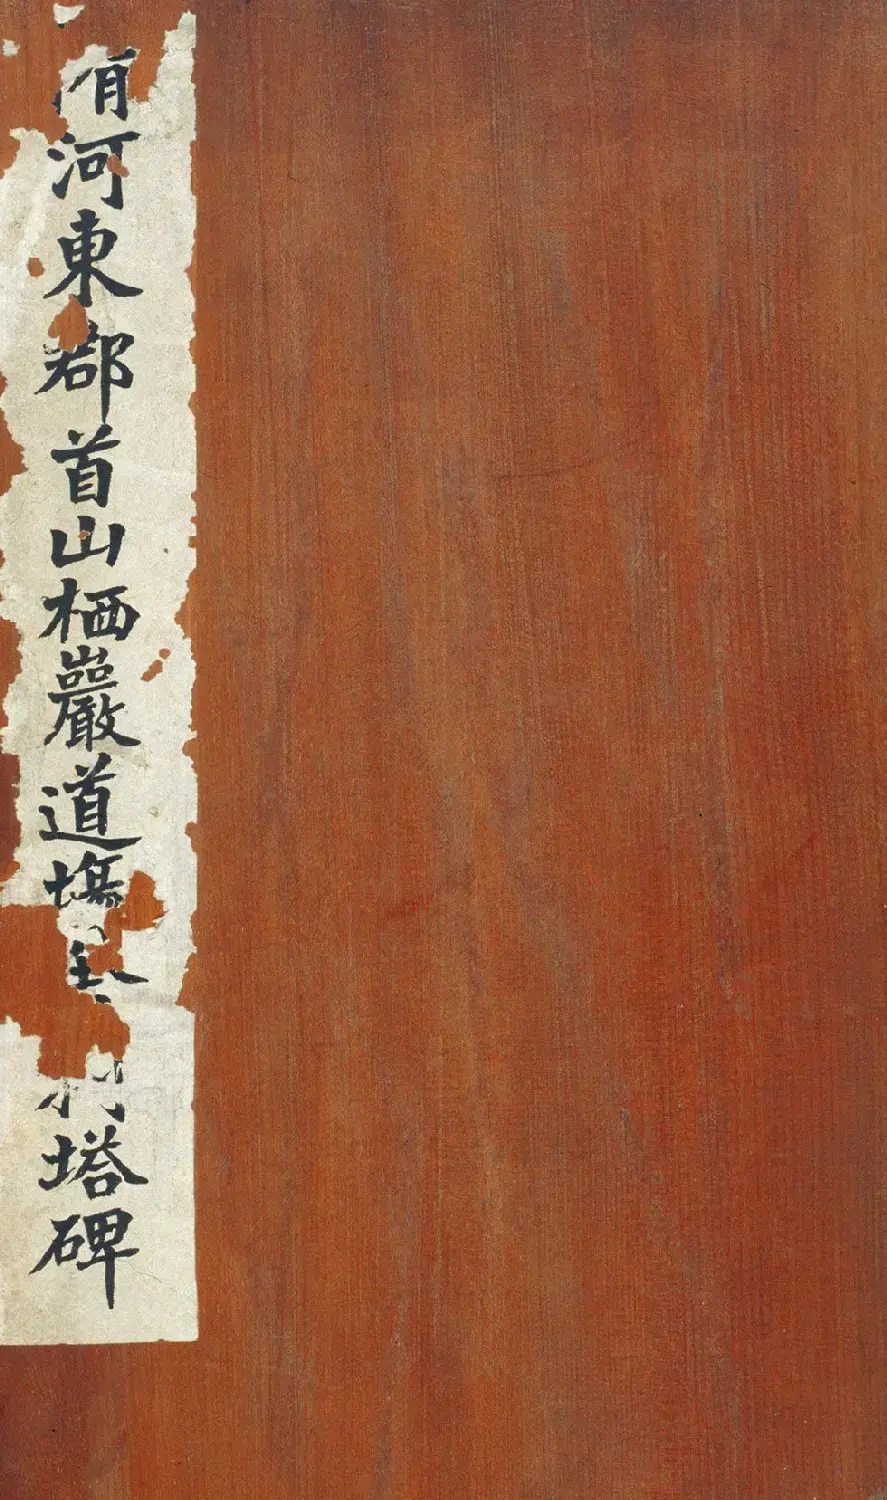 隋河東郡首山栖巖道塲利塔碑